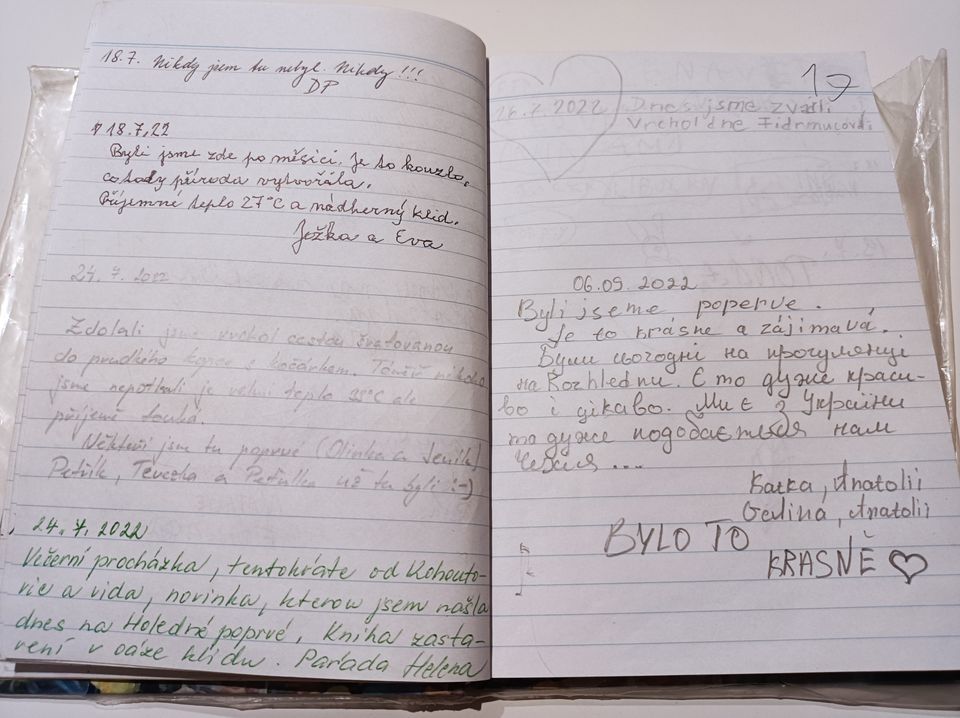 18.7. Nikdy jsem tu nebyl. Nikdy!!!
DP
18.7.22
Byli jsme zde po měsíci. Je to kouzlo,
co tady příroda vytvořila.
Příjemné teplo 27°C a nádherný klid.
Ježka a Eva
24. 7. 2022
Zdolali jsme vrchol cestou
do prudkého kopce s kočárkem. Téměř nikoho
jsme nepotkali je velmi teplo 35°C ale
příjemně fouká.
Někteří jsme tu poprvé (Olinka a Jeník)
Petřík, Terezka a Petrulka už tu byli :-)
24. 7. 2022
Večerní procházka, tentokráte od Kohouto-
vic a vida, novinka, kterow jsem našla
dnes na Holedné poprvé. Kniha zasta-
vení v oáze klidu. Paráda Helena
17
2022 Dnes jsme zváli
Vrchol dne Fidrmucovi.
06.09.2022
Byli jseme poperve.
Je to krásne a zájimavá.
Були сьогодні на прогулянці
на Rozhlednu. Є то дуже краси-
во і цікаво. Ми є з України
та дуже подобається нам
Чехія ...
Katka, Anatolii
Galina, Anatolii
BYLO TO
KRASNĚ ♡